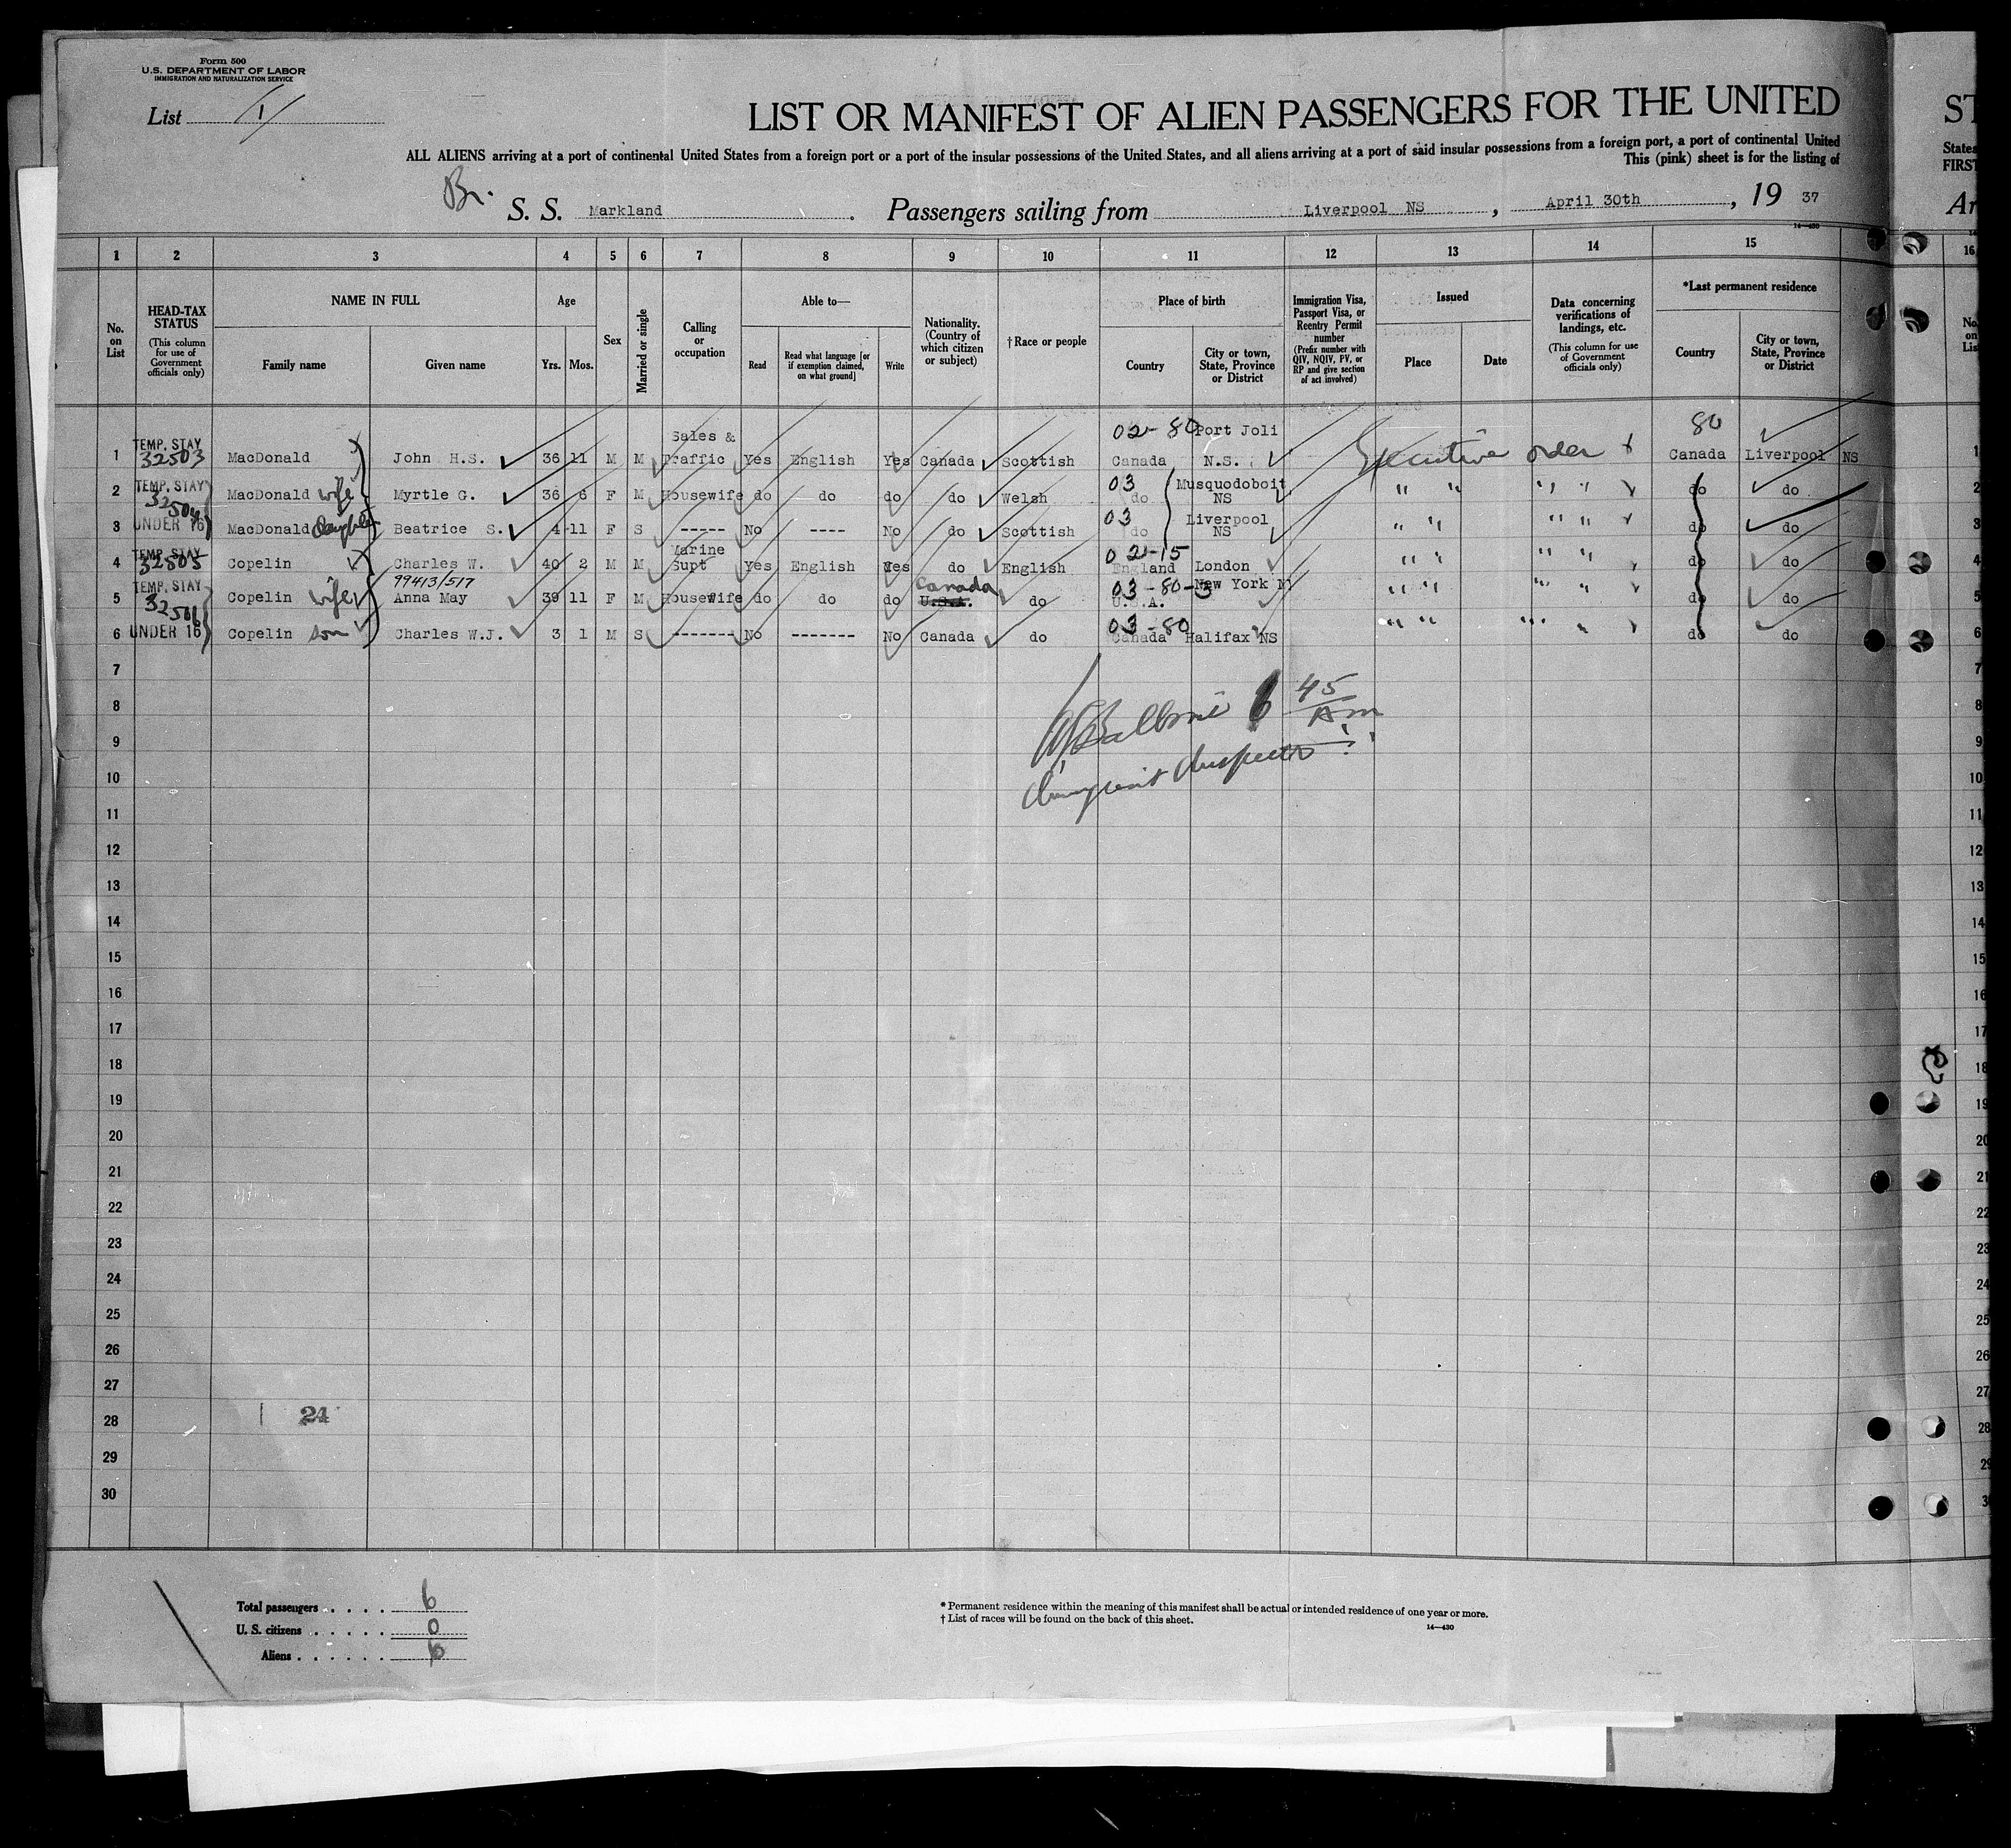 Form 500
U.S. DEPARTMENT OF LABOR
IMMIGRATION AND NATURALIZATION SERVICE
List 1
LIST OR MANIFEST OF ALIEN PASSENGERS FOR THE UNITED
ST
ALL ALIENS arriving at a port of continental United States from a foreign port or a port of the insular possessions of the United States, and all aliens arriving at a port of said insular possessions from a foreign port, a port of continental United
States
This (pink) sheet is for the listing of
FIRST
Br.
S. S. Markland. Passengers sailing from Liverpool NS, April 30th, 19 37
Ar
14—430
1 2 3 4 5 6 7 8 9 10 11 12 13 14 15 16
No. on List
HEAD-TAX STATUS
(This column for use of Government officials only)
NAME IN FULL
Family name
Given name
Age
Yrs. Mos.
Sex
Married or single
Calling or occupation
Able to—
Read
Read what language [or if exemption claimed, on what ground]
Write
Nationality. (Country of which citizen or subject)
†Race or people
Place of birth
Country
City or town, State, Province or District
Immigration Visa, Passport Visa, or Reentry Permit number
(Prefix number with QIV, NQIV, PV, or RP and give section of act involved)
Issued
Place
Date
Data concerning verifications of landings, etc.
(This column for use of Government officials only)
*Last permanent residence
Country
City or town, State, Province or District
No. on List
1 TEMP. STAY 32503 MacDonald John H.S. 36 11 M M Sales & Traffic Yes English Yes Canada Scottish 02-80 Canada Port Joli N.S. Executive order 80 Canada Liverpool NS 1
2 TEMP. STAY 32504 MacDonald wife Myrtle G. 36 6 F M Housewife do do do do Welsh 03 do Musquodoboit NS " " " " do do 2
3 UNDER 16 MacDonald daughter Beatrice S. 4 11 F S ----- No ---- No do Scottish 03 do Liverpool NS " " " " do do 3
4 TEMP. STAY 32505 Copelin Charles W. 40 2 M M Marine Supt Yes English Yes do English 02-15 England London " " " " do do 4
5 TEMP. STAY 32506 Copelin wife 99413/517 Anna May 39 11 F M Housewife do do do Canada U.S.A. do 03-80-3 U.S.A. New York N " " " " do do 5
6 UNDER 16 Copelin son Charles W.J. 3 1 M S ------- No ------- No Canada do 03-80 Canada Halifax NS " " " " do do 6
7 7
8 8
9 9
6 45 Am
10 10
Immigrant Inspector
11 11
12 12
13 13
14 14
15 15
16 16
17 17
18 18
19 19
20 20
21 21
22 22
23 23
24 24
25 25
26 26
27 27
28 24 28
29 29
30
Total passengers . . . . 6
U. S. citizens . . . . . 0
Aliens . . . . . . 6
* Permanent residence within the meaning of this manifest shall be actual or intended residence of one year or more.
† List of races will be found on the back of this sheet.
14—430